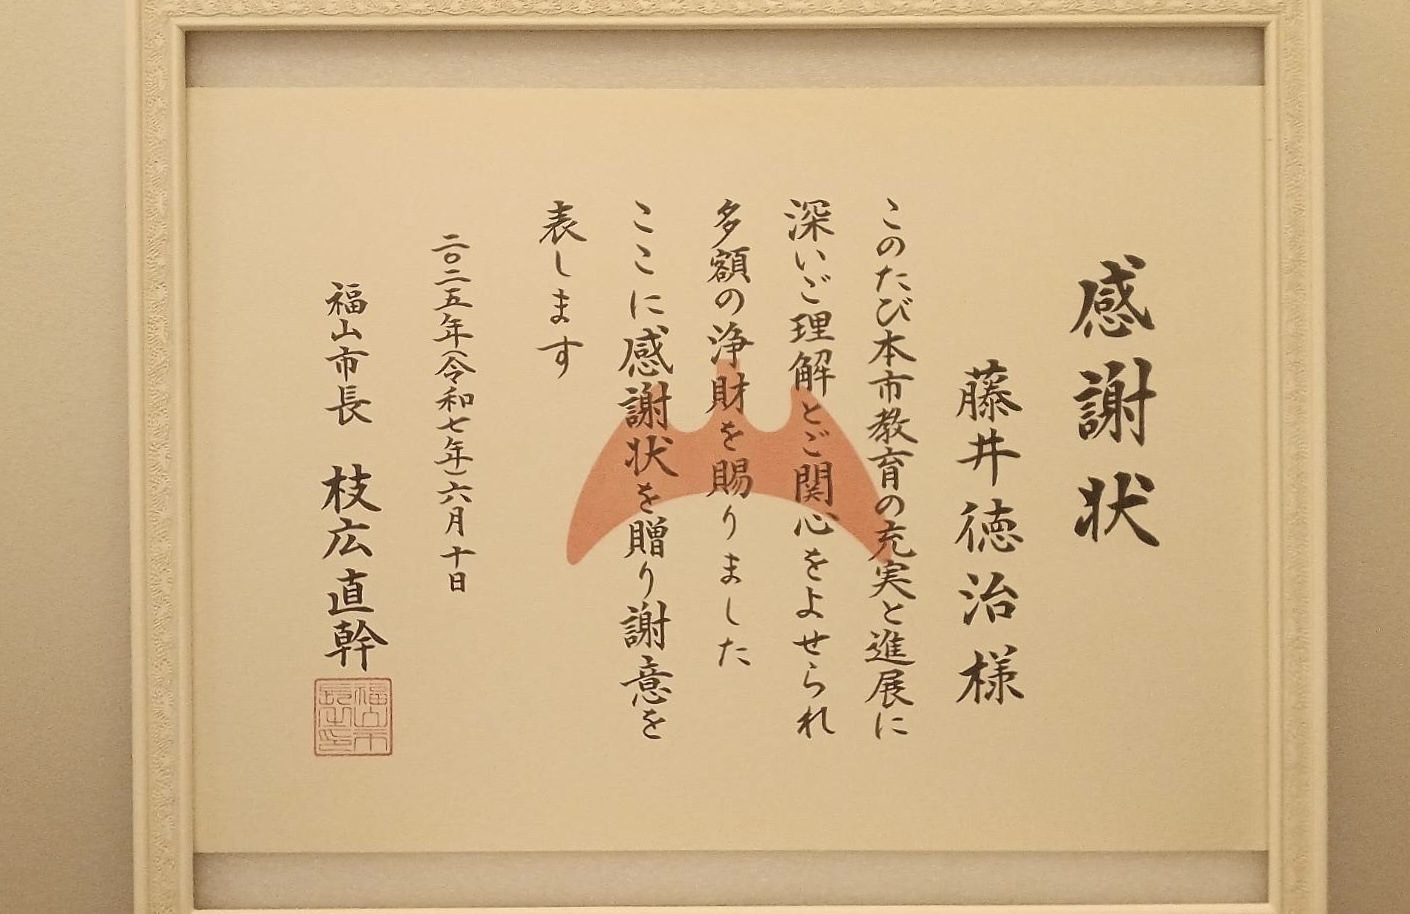 感謝状
藤井徳治様
このたび本市教育の充実と進展に
深いご理解とご関心をよせられ
多額の浄財を賜りました
ここに感謝状を贈り謝意を
表します
二〇二五年(令和七年)六月十日
福山市長 枝広直幹
福山市長之印